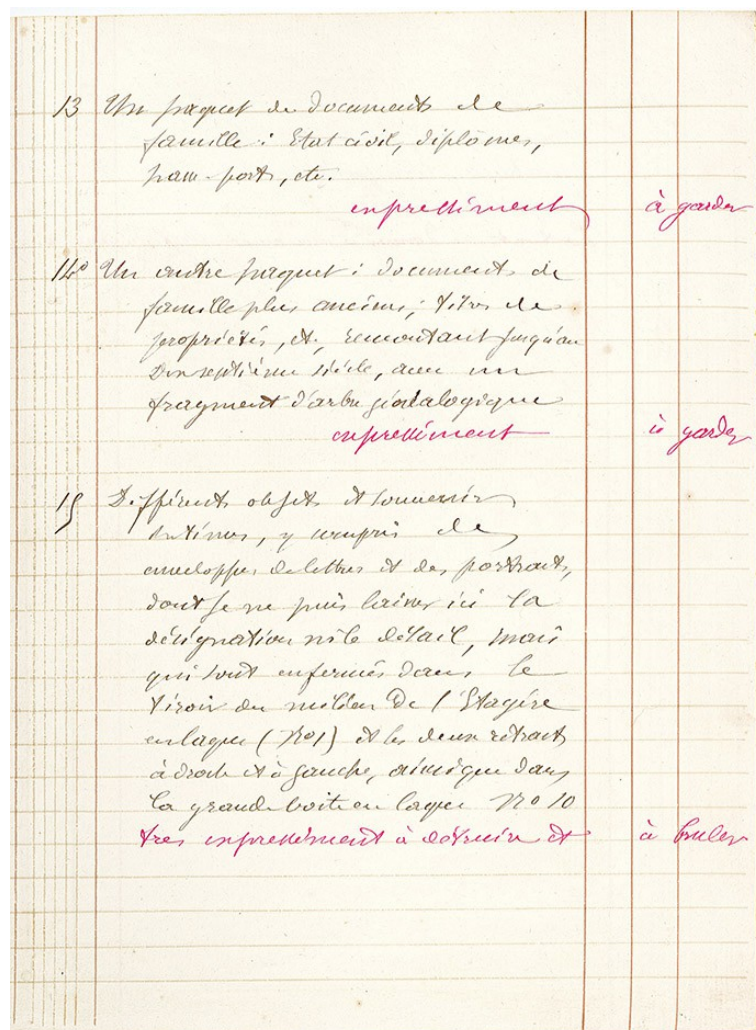 13 Un paquet de documents de
famille : Etat civil, diplômes,
passe-ports, etc.
expressément à garder
14° Un autre paquet : documents de
famille plus anciens ; titres de
propriétés, et, remontant jusqu'au
Dix septième siècle, avec un
fragment d'arbre généalogique
expressément à garder
15 Différents objets et souvenirs
intimes, y compris de
enveloppes de lettres et des portraits,
dont je ne puis laisser ici la
désignation ni le détail, mais
qui sont enfermés dans le
tiroir du milieu de l'Etagère
en laque (No 1) et les deux retraits
à droite et à gauche, ainsi que dans
la grande boite en laque No 10
très expressément à détruire et à bruler